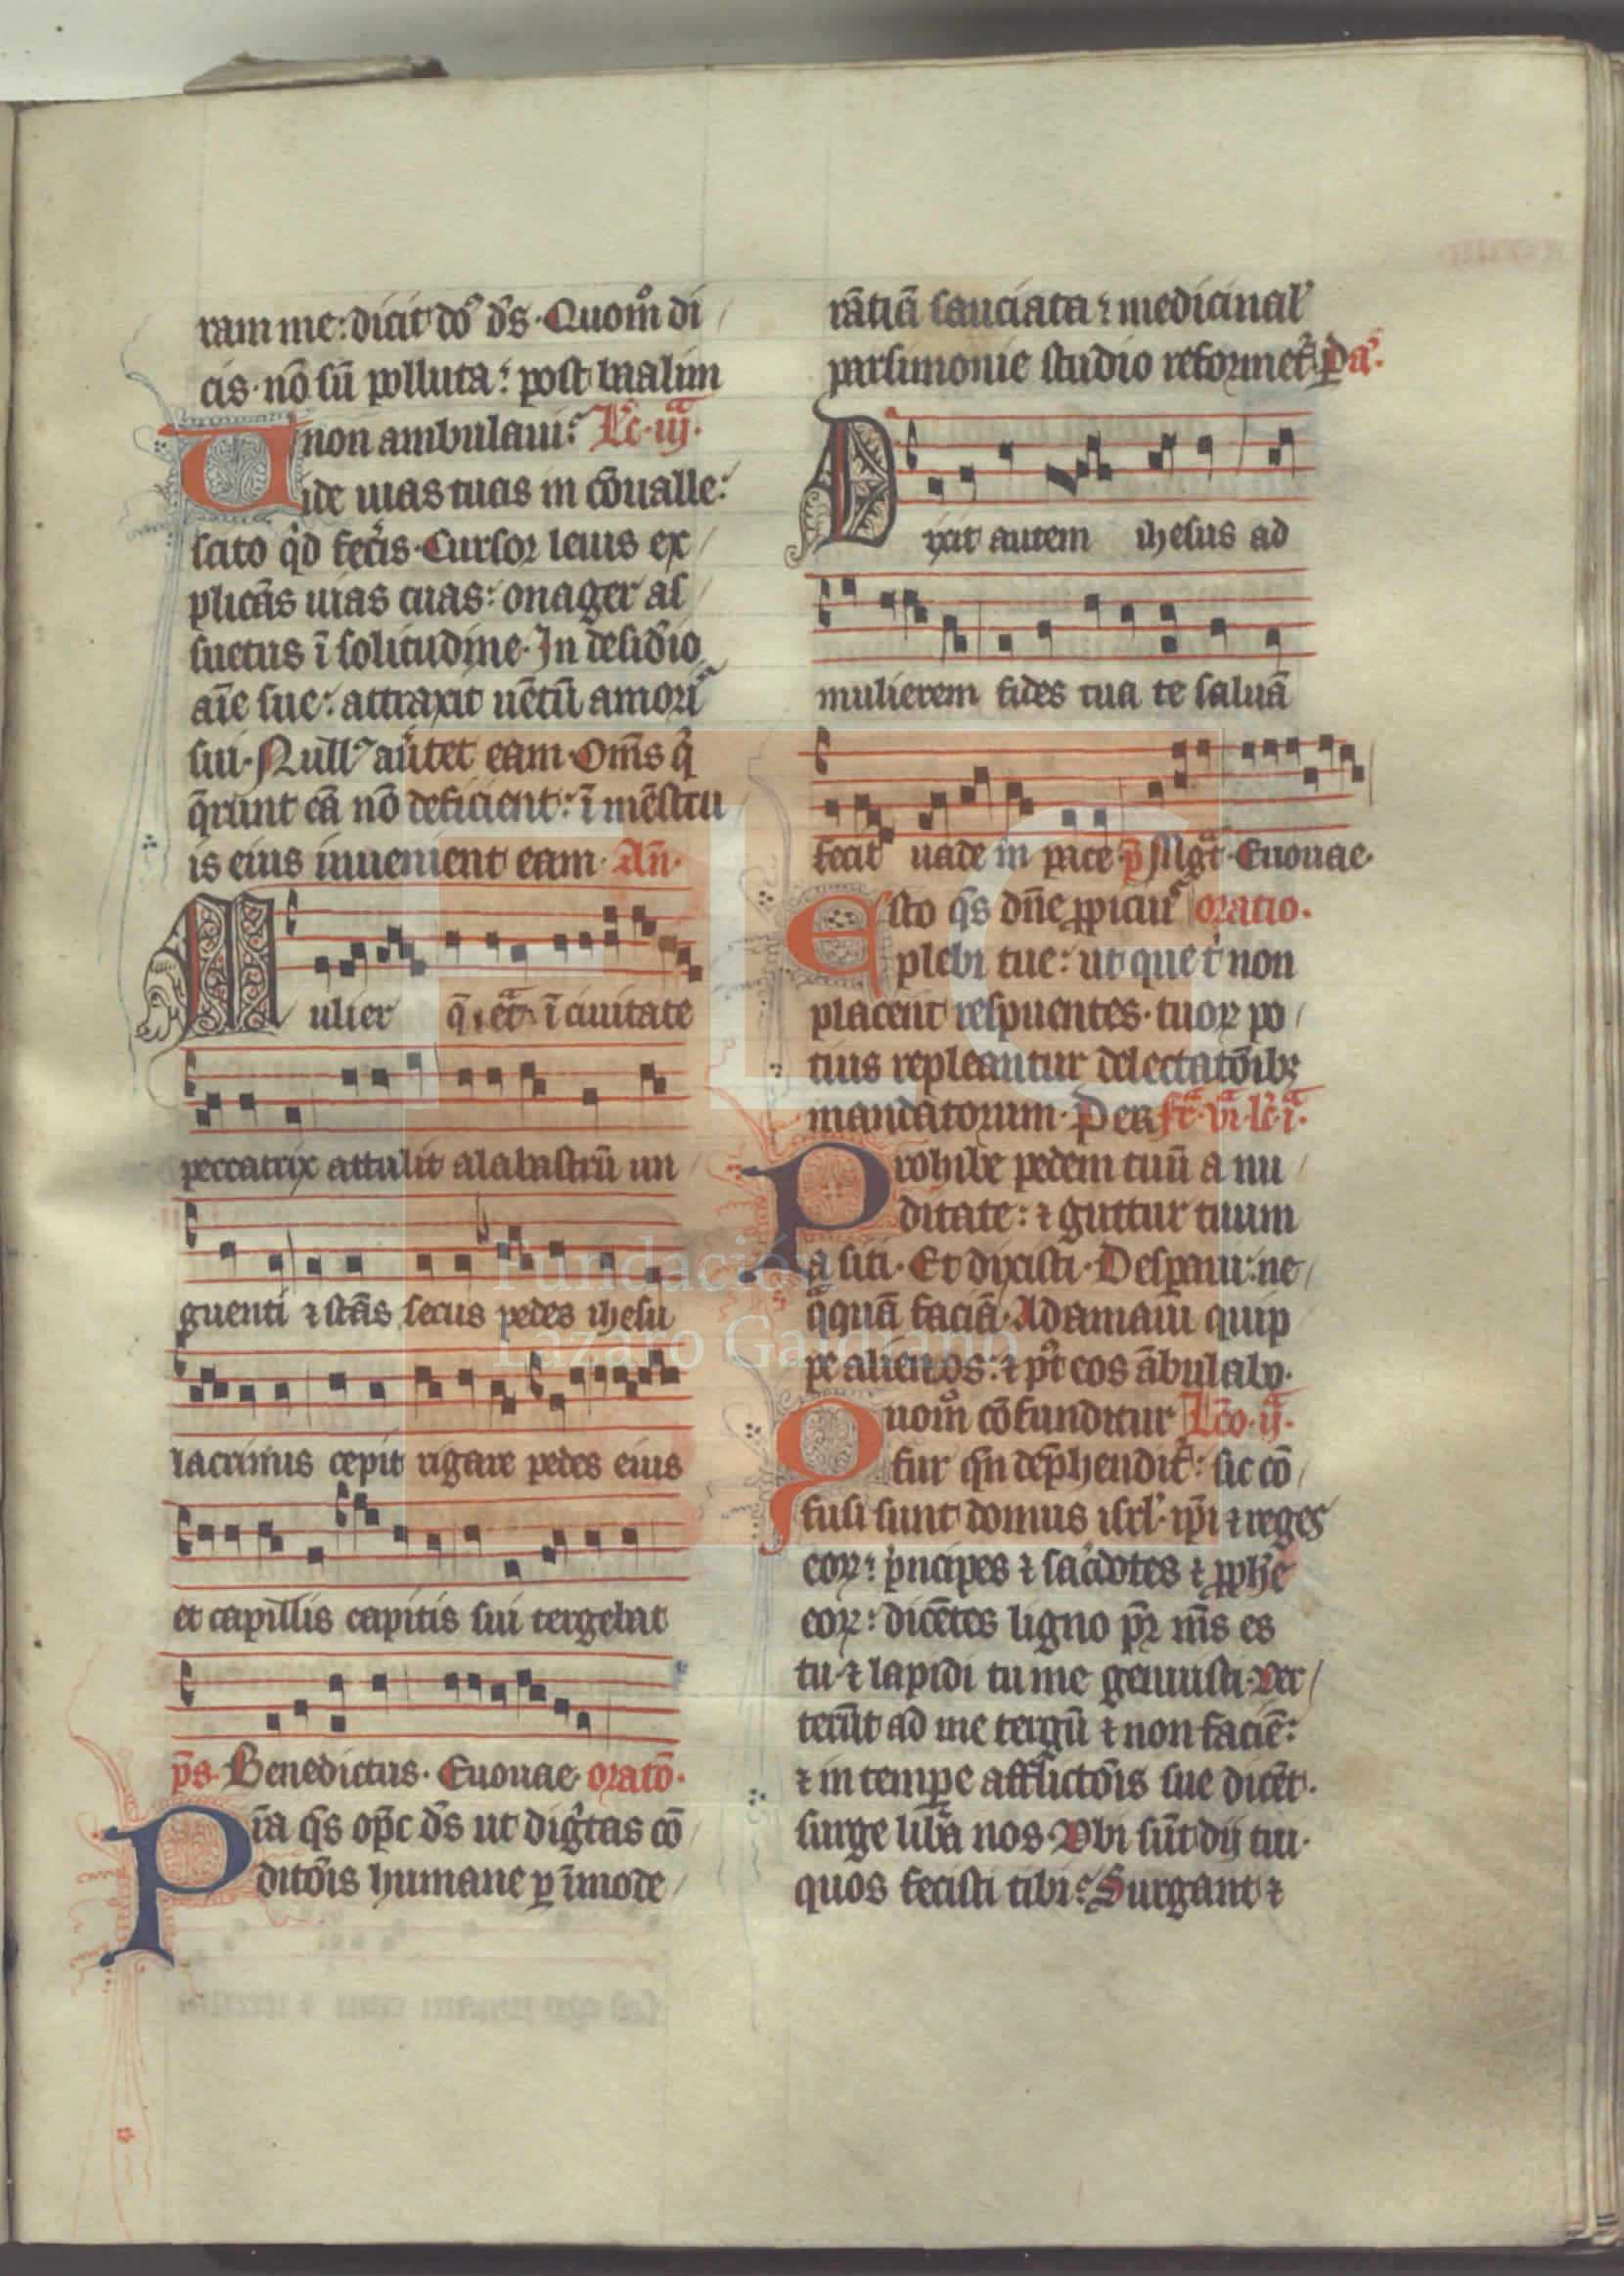 ram me: dicit dō d̄s. Quom̊ di
cis. nō sū polluta: post baalim
non ambulaui? Lc̄. iij.
Uide uias tuas in cōualle:
scito qd fec̄is. Cursor leuis ex
plicās uias tuas: onager as
suetus ī solitudine. In desid̄io
aīe sue: attraxit uētū amoris
sui. Null' au̾tet eam. Om̄s q̄
q̄runt eā nō deficient: ī mēstru
is eius inuenient eam. An̄.
Mulier q̄ erat ī ciuitate
peccatrix attulit alabastrū un
guenti ⁊ stās secus pedes ihesu
lacrimis cepit rigare pedes eius
et capillis capitis sui tergebat
p̄s. Benedictus. Euouae. oratō.
Pīa q̄s op̄c d̄s ut dig̾tas cō
ditōis humane ꝑ īmode
rātiā sauciata: medicinal'
parsimonie studio reformet̾. ꝑ
Dixit autem ihesus ad
mulierem fides tua te saluā
fecit uade in pace p̄ Mgt̄. Euouae.
Esto q̄s dn̄e ꝓpiciu' oratio.
plebi tue: ut que t̾ non
placent respuentes. tuoꝝ po
tius repleantur delectatōibꝫ
mandatorum. Per fr̄. vi. lc̄. i.
Prohibe pedem tuū a nu
ditate: ⁊ guttur tuum
a siti. Et dixisti. Desꝑaui: ne
q̄quā faciā. Adamaui quip
pe alienos: ⁊ pt̾ eos ābulabo.
Quom̊ cōfunditur Lc̄o. ij.
fur qn̄ dep̄hendit̾: sic cō
fusi sunt domus isrl'. ip̄i ⁊ reges
eoꝝ: p̾ncipes ⁊ sac̾dotes ⁊ ꝓphe
eoꝝ: dicētes ligno pr̄ m̄s es
tu. ⁊ lapidi tu me genuisti. Ver
terūt ad me tergū ⁊ non faciē:
⁊ in tempe afflictōis sue dicēt.
surge lib̄a nos. Vbi sūt dij tui.
quos fecisti tibi? Surgant ⁊
Fundación
Lázaro Galdiano